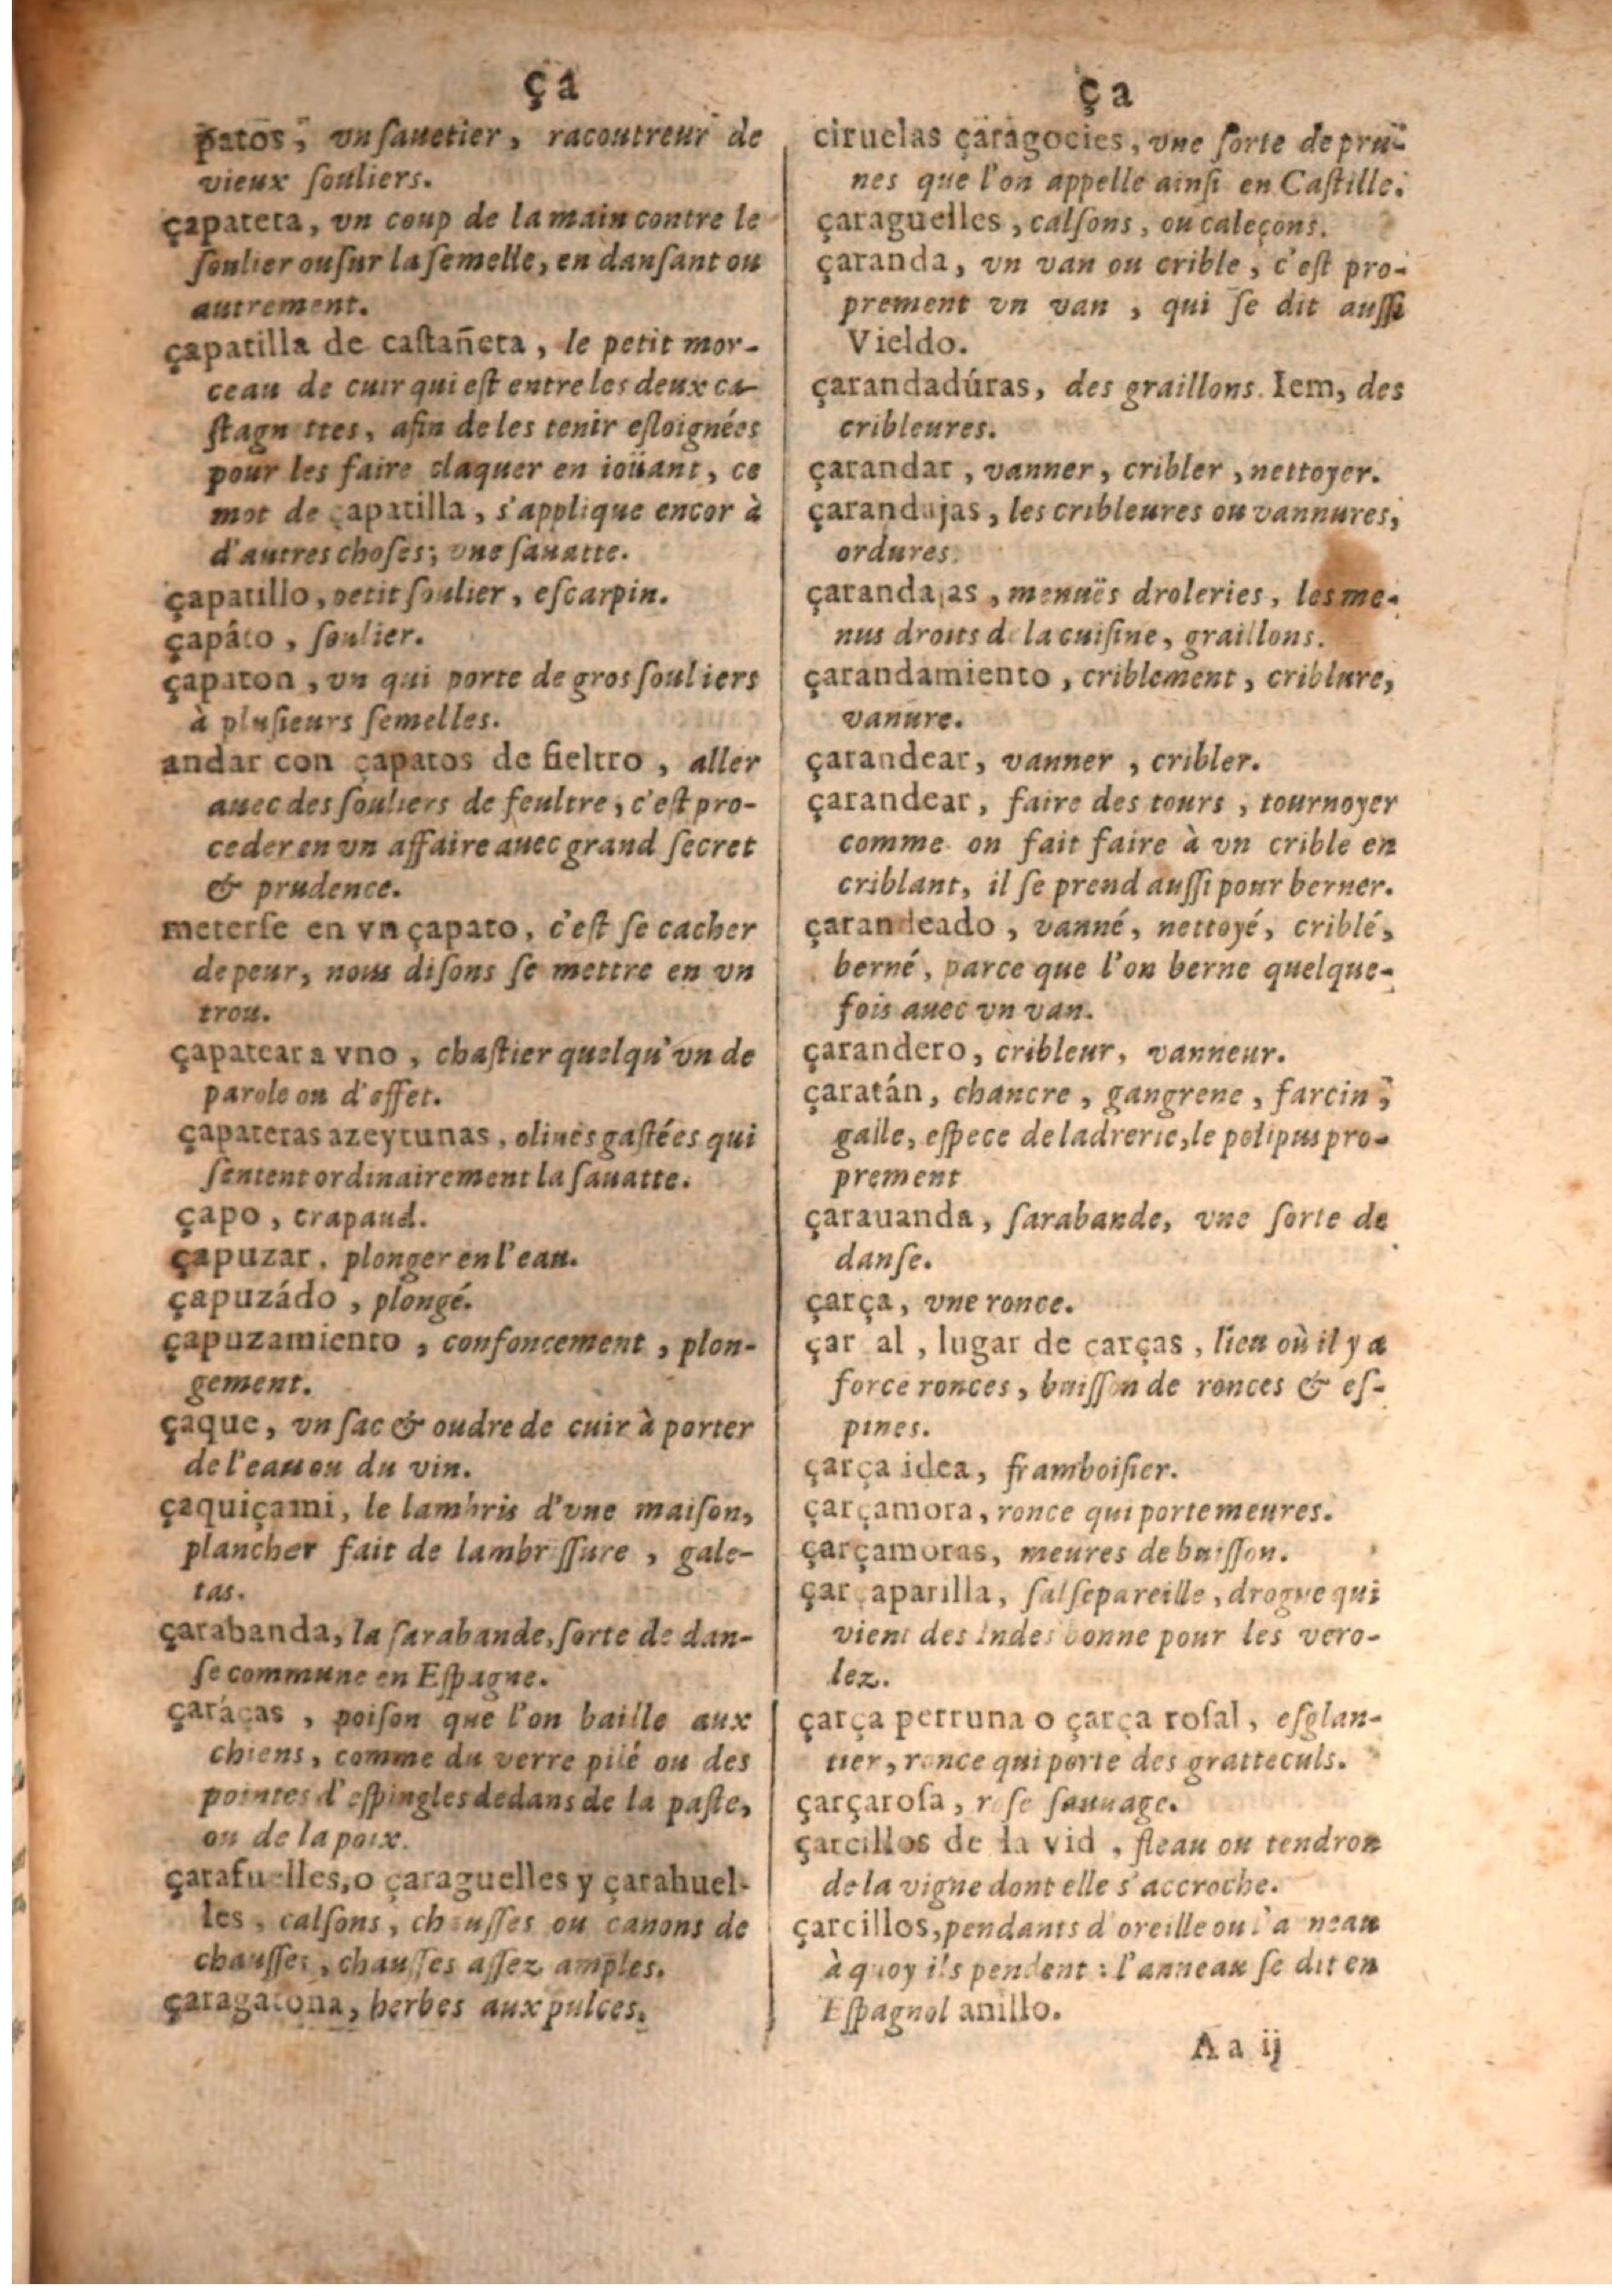 ça
patos, vn ſauetier, racoutreur de
vieux ſouliers.
çapateta, vn coup de la main contre le
ſoulier ou ſur la ſemelle, en danſant ou
autrement.
çapatilla de caſtañeta, le petit mor-
ceau de cuir qui eſt entre les deux ca-
ſtagn ttes, afin de les tenir eſloignées
pour les faire claquer en ioüant, ce
mot de çapatilla, s'applique encor à
d'autres choſes; vne ſauatte.
çapatillo, petit ſoulier, eſcarpin.
çapâto, ſoulier.
çapaton, vn qui porte de gros ſouliers
à pluſieurs ſemelles.
andar con çapatos de fieltro, aller
auec des ſouliers de feultre, c'eſt pro-
ceder en vn affaire auec grand ſecret
& prudence.
meterſe en vn çapato, c'eſt ſe cacher
de peur, nous diſons ſe mettre en vn
trou.
çapatear a vno, chaſtier quelqu'vn de
parole ou d'effet.
çapateras azeytunas, oliues gaſtées qui
ſentent ordinairement la ſauatte.
çapo, crapaud.
çapuzar, plonger en l'eau.
çapuzádo, plongé.
çapuzamiento, confoncement, plon-
gement.
çaque, vn ſac & oudre de cuir à porter
de l'eau ou du vin.
çaquiçami, le lambris d'vne maiſon,
plancher fait de lambr ſſure, gale-
tas.
çarabanda, la ſarabande, ſorte de dan-
ſe commune en Eſpagne.
çaráças, poiſon que l'on baille aux
chiens, comme du verre pilé ou des
pointes d'eſpingles dedans de la paſte,
ou de la poix.
çarafuelles, o çaraguelles y çarahuel-
les, calſons, chauſſes ou canons de
chauſſes, chauſſes aſſez amples.
çaragatona, herbes aux pulces.
ça
ciruelas çaragocies, vne ſorte de pru-
nes que l'on appelle ainſi en Caſtille.
çaraguelles, calſons, ou caleçons.
çaranda, vn van ou crible, c'eſt pro-
prement vn van, qui ſe dit auſſi
Vieldo.
çarandadúras, des graillons. Iem, des
cribleures.
çarandar, vanner, cribler, nettoyer.
çarandajas, les cribleures ou vannures,
ordures.
çarandajas, menuës droleries, les me-
nus droits de la cuiſine, graillons.
çarandamiento, criblement, criblure,
vanure.
çarandear, vanner, cribler.
çarandear, faire des tours, tournoyer
comme on fait faire à vn crible en
criblant, il ſe prend auſſi pour berner.
çarandeado, vanné, nettoyé, criblé,
berné, parce que l'on berne quelque-
fois auec vn van.
çarandero, cribleur, vanneur.
çaratán, chancre, gangrene, farcin,
galle, eſpece de ladrerie, le polipus pro-
prement
çarauanda, ſarabande, vne ſorte de
danſe.
çarça, vne ronce.
çar al, lugar de çarças, lieu où il y a
force ronces, buiſſon de ronces & eſ-
pines.
çarça idea, framboiſier.
çarçamora, ronce qui porte meures.
çarçamoras, meures de buiſſon.
çarçaparilla, ſalſepareille, drogue qui
vient des Indes bonne pour les vero-
lez.
çarça perruna o çarça roſal, eſglan-
tier, ronce qui porte des gratteculs.
çarçaroſa, roſe ſauuage.
çarcillos de la vid, fleau ou tendron
de la vigne dont elle s'accroche.
çarcillos, pendants d'oreille ou l'anneau
à quoy ils pendent: l'anneau ſe dit en
Eſpagnol anillo.
A a ij